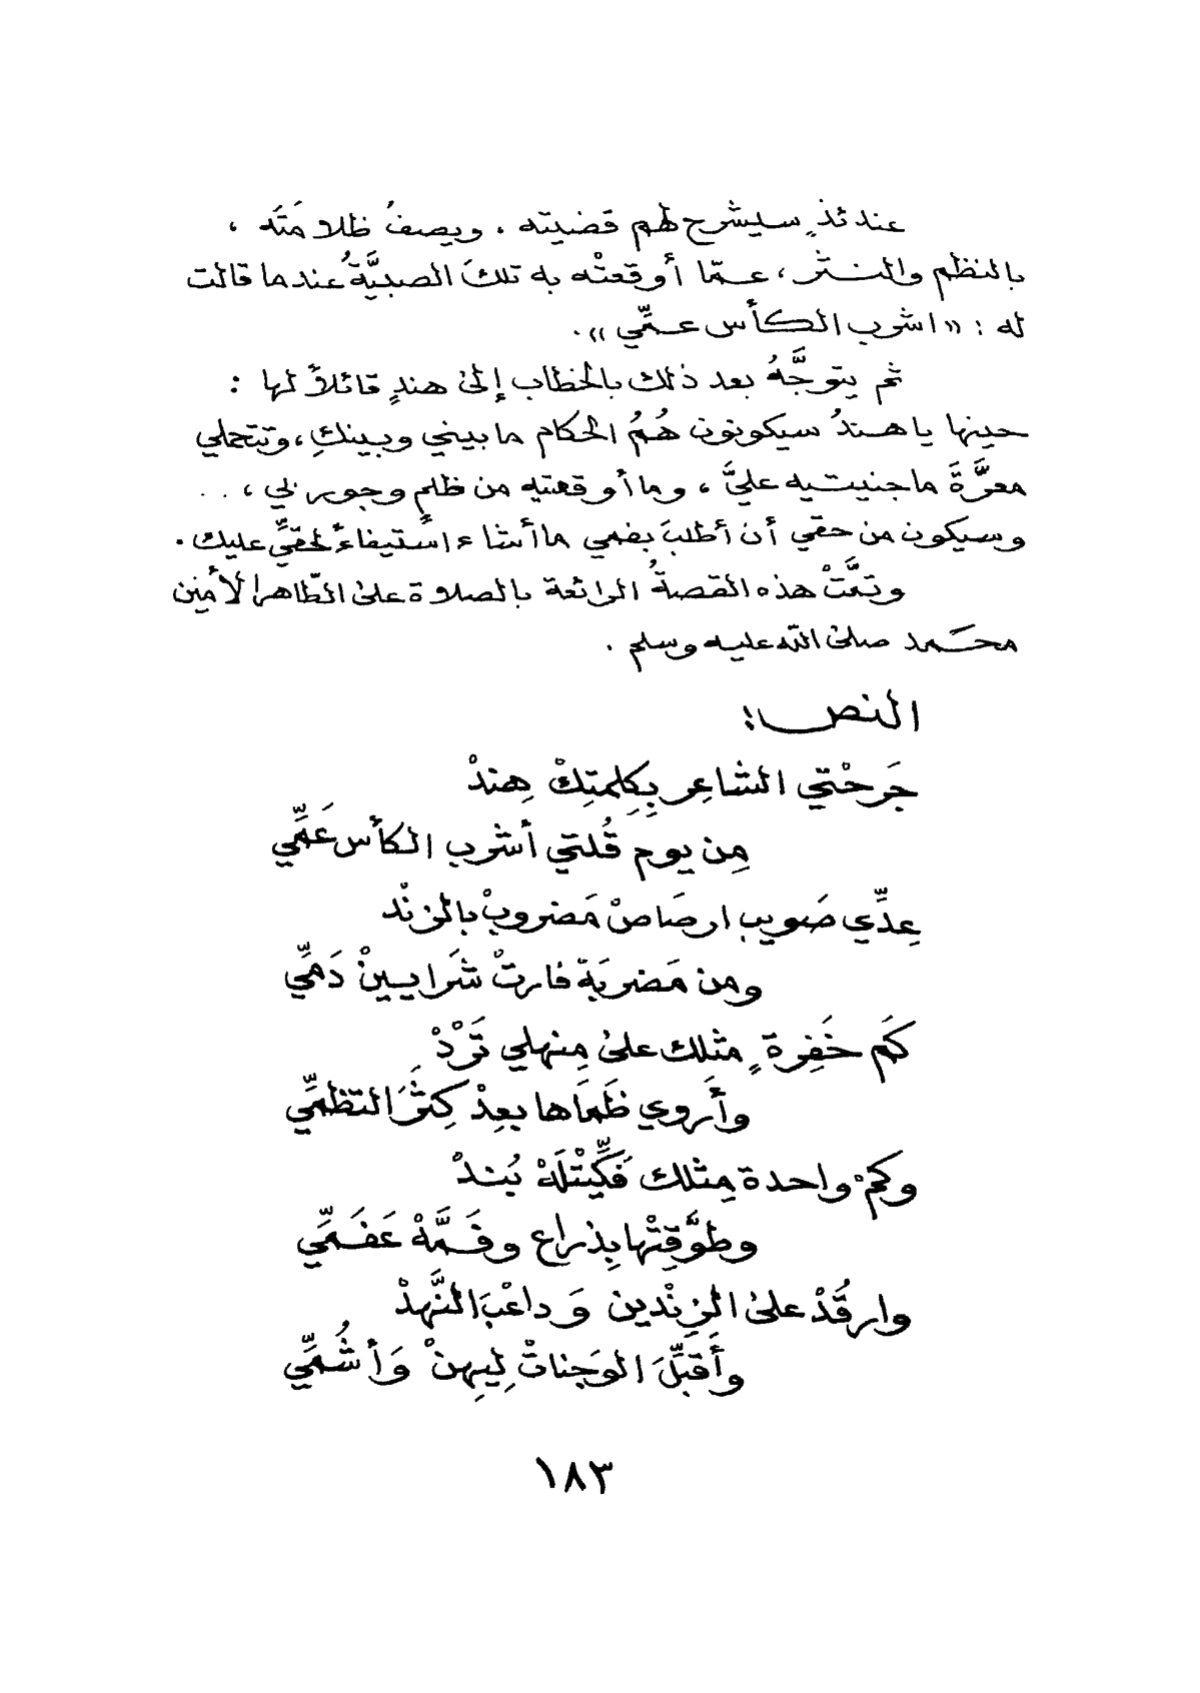 عندئذٍ سيشرح لهم قضيته ، ويصفُ ظلامَتَه ،
بالنظم والنثر ، عمّا أوقعتْه به تلكَ الصبيَّةُ عندما قالت
له : «اشرب الكأس عمِّي» .
ثم يتوجَّهُ بعد ذلك بالخطاب إلى هندٍ قائلاً لها :
حينها يا هندُ سيكونون هُمُ الحكام ما بيني وبينكِ ، وتتحملي
معرَّةَ ما جنيتيه عليَّ ، وما أوقعتيه من ظلمٍ وجور بي ، . .
وسيكون من حقي أن أطلبَ بفمي ما أشاء استيفاءً لحقيِّ عليك .
وتمَّتْ هذه القصةُ الرائعة بالصلاة على الطّاهر الأمين
محمد صلى الله عليه وسلم .
النص :
جَرحْتي الشاعِر بِكِلِمتِكْ هِندْ
مِن يوم قُلتي أشرب الكأس عَمِّي
عِدِّي صَويب ارصَاصْ مَضروبْ بالزنْد
ومن مَضربَهْ فارتْ شَرايينْ دَمِّي
كَم خَفِرةٍ مثلك على مِنهلي تَرْدْ
وأَروي ظَمَاها بعِدْ كِثْرَ التظمِّي
وكمْ واحدة مِثلك فَكِّيتْلَهْ بُندْ
وطوَّقِتْها بِذراع وفَمَّهْ عَفَمِّي
وارقُدْ على الزِنْدين وَداعْبَ النَّهدْ
وأَقبِّلَ الوَجناتْ لِيهِنْ وَأشُمِّي
١٨٣